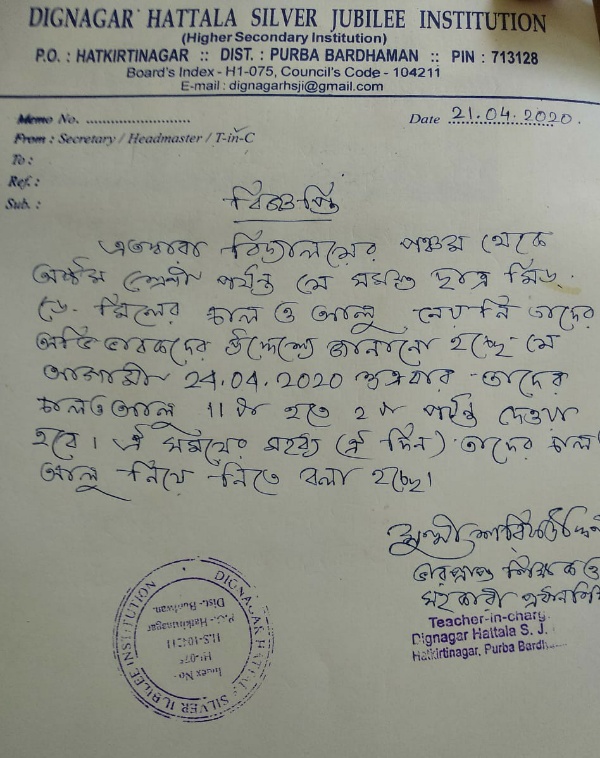 DIGNAGAR HATTALA SILVER JUBILEE INSTITUTION
(Higher Secondary Institution)
P.O. : HATKIRTINAGAR :: DIST. : PURBA BARDHAMAN :: PIN : 713128
Board's Index - H1-075, Council's Code - 104211
E-mail : dignagarhsji@gmail.com
Memo No. ..........................
Date 21.04.2020.
From : Secretary / Headmaster / T-in-C
To :
Ref. :
Sub. :
বিজ্ঞপ্তি
এতদ্বারা বিদ্যালয়ের পঞ্চম থেকে
অষ্টম শ্রেণী পর্যন্ত যে সমস্ত ছাত্র মিড.
ডে. মিলের চাল ও আলু নেয়নি তাদের
অভিভাবকদের উদ্দেশ্যে জানানো হচ্ছে যে
আগামী 24.04.2020 শুক্রবার তাদের
চাল ও আলু 11 টা হতে 2 টা পর্যন্ত দেওয়া
হবে। ঐ সময়ের মধ্যে (ঐ দিন) তাদের চাল
আলু নিয়ে নিতে বলা হচ্ছে।
ভারপ্রাপ্ত শিক্ষক ও
সহকারী
Teacher-in-charg
Dignagar Hattala S. J.
Hatkirtinagar, Purba Bardh
DIGNAGAR HATTALA SILVER JUBILEE INSTITUTION
Index No-
H1-075
H.S-104211
P.O.- Hatkirtinagar
Dist.- Burdwan.